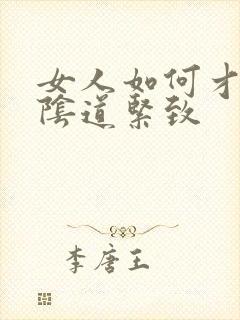 女人如何才
陰道緊致
李唐王